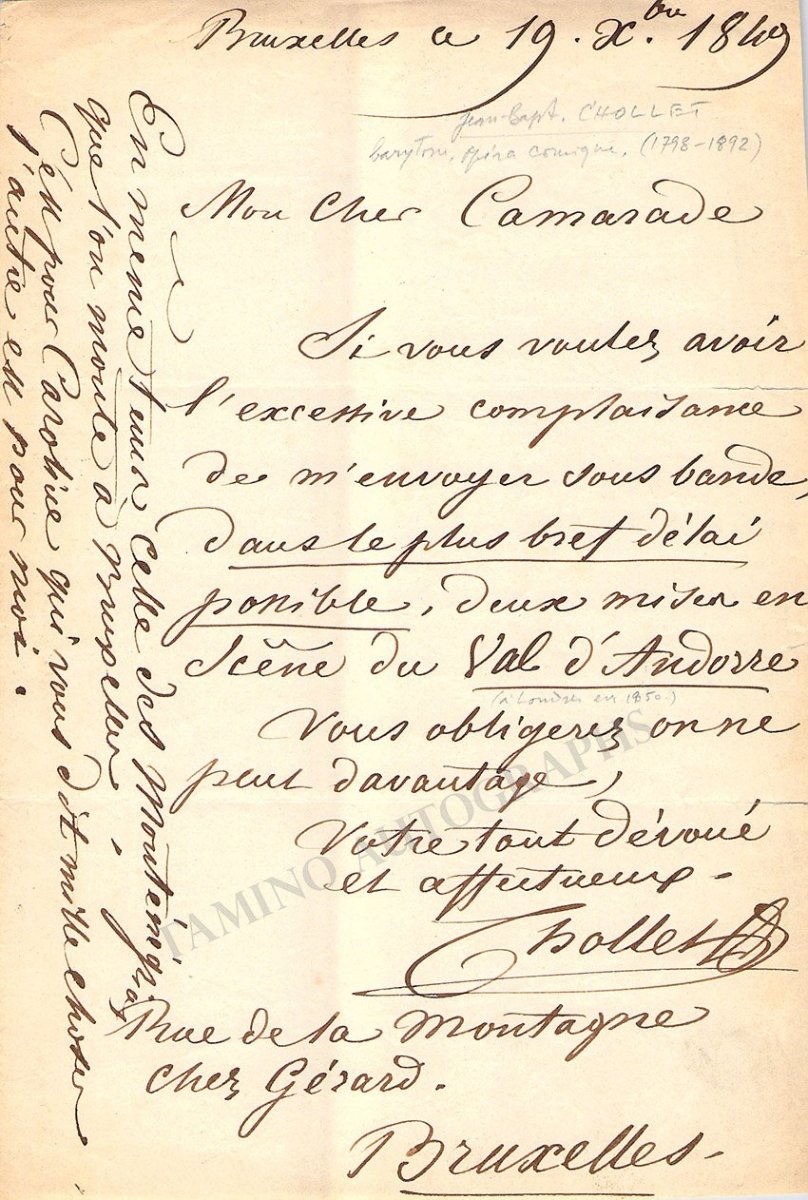 Bruxelles ce 19. Xbre 1849
Jean-Bapt. CHOLLET
baryton, opéra comique. (1798-1892)
Mon cher Camarade
Si vous voulez avoir
l'excessive complaisance
de m'envoyer sous bande,
dans le plus bref délai
possible, deux mises en
Scène du Val d'Andorre
(à Londres en 1850.)
Vous obligerez on ne
peut davantage,
Votre tout dévoué
et affectueux -
Chollet
Rue de la Montagne
chez Gérard.
Bruxelles -
En même tems celle des Monténégrins
que l'on monte à Bruxelles,
C'est pour Caroline qui vous dit mille choses
l'autre est pour moi.
TAMINO AUTOGRAPHS